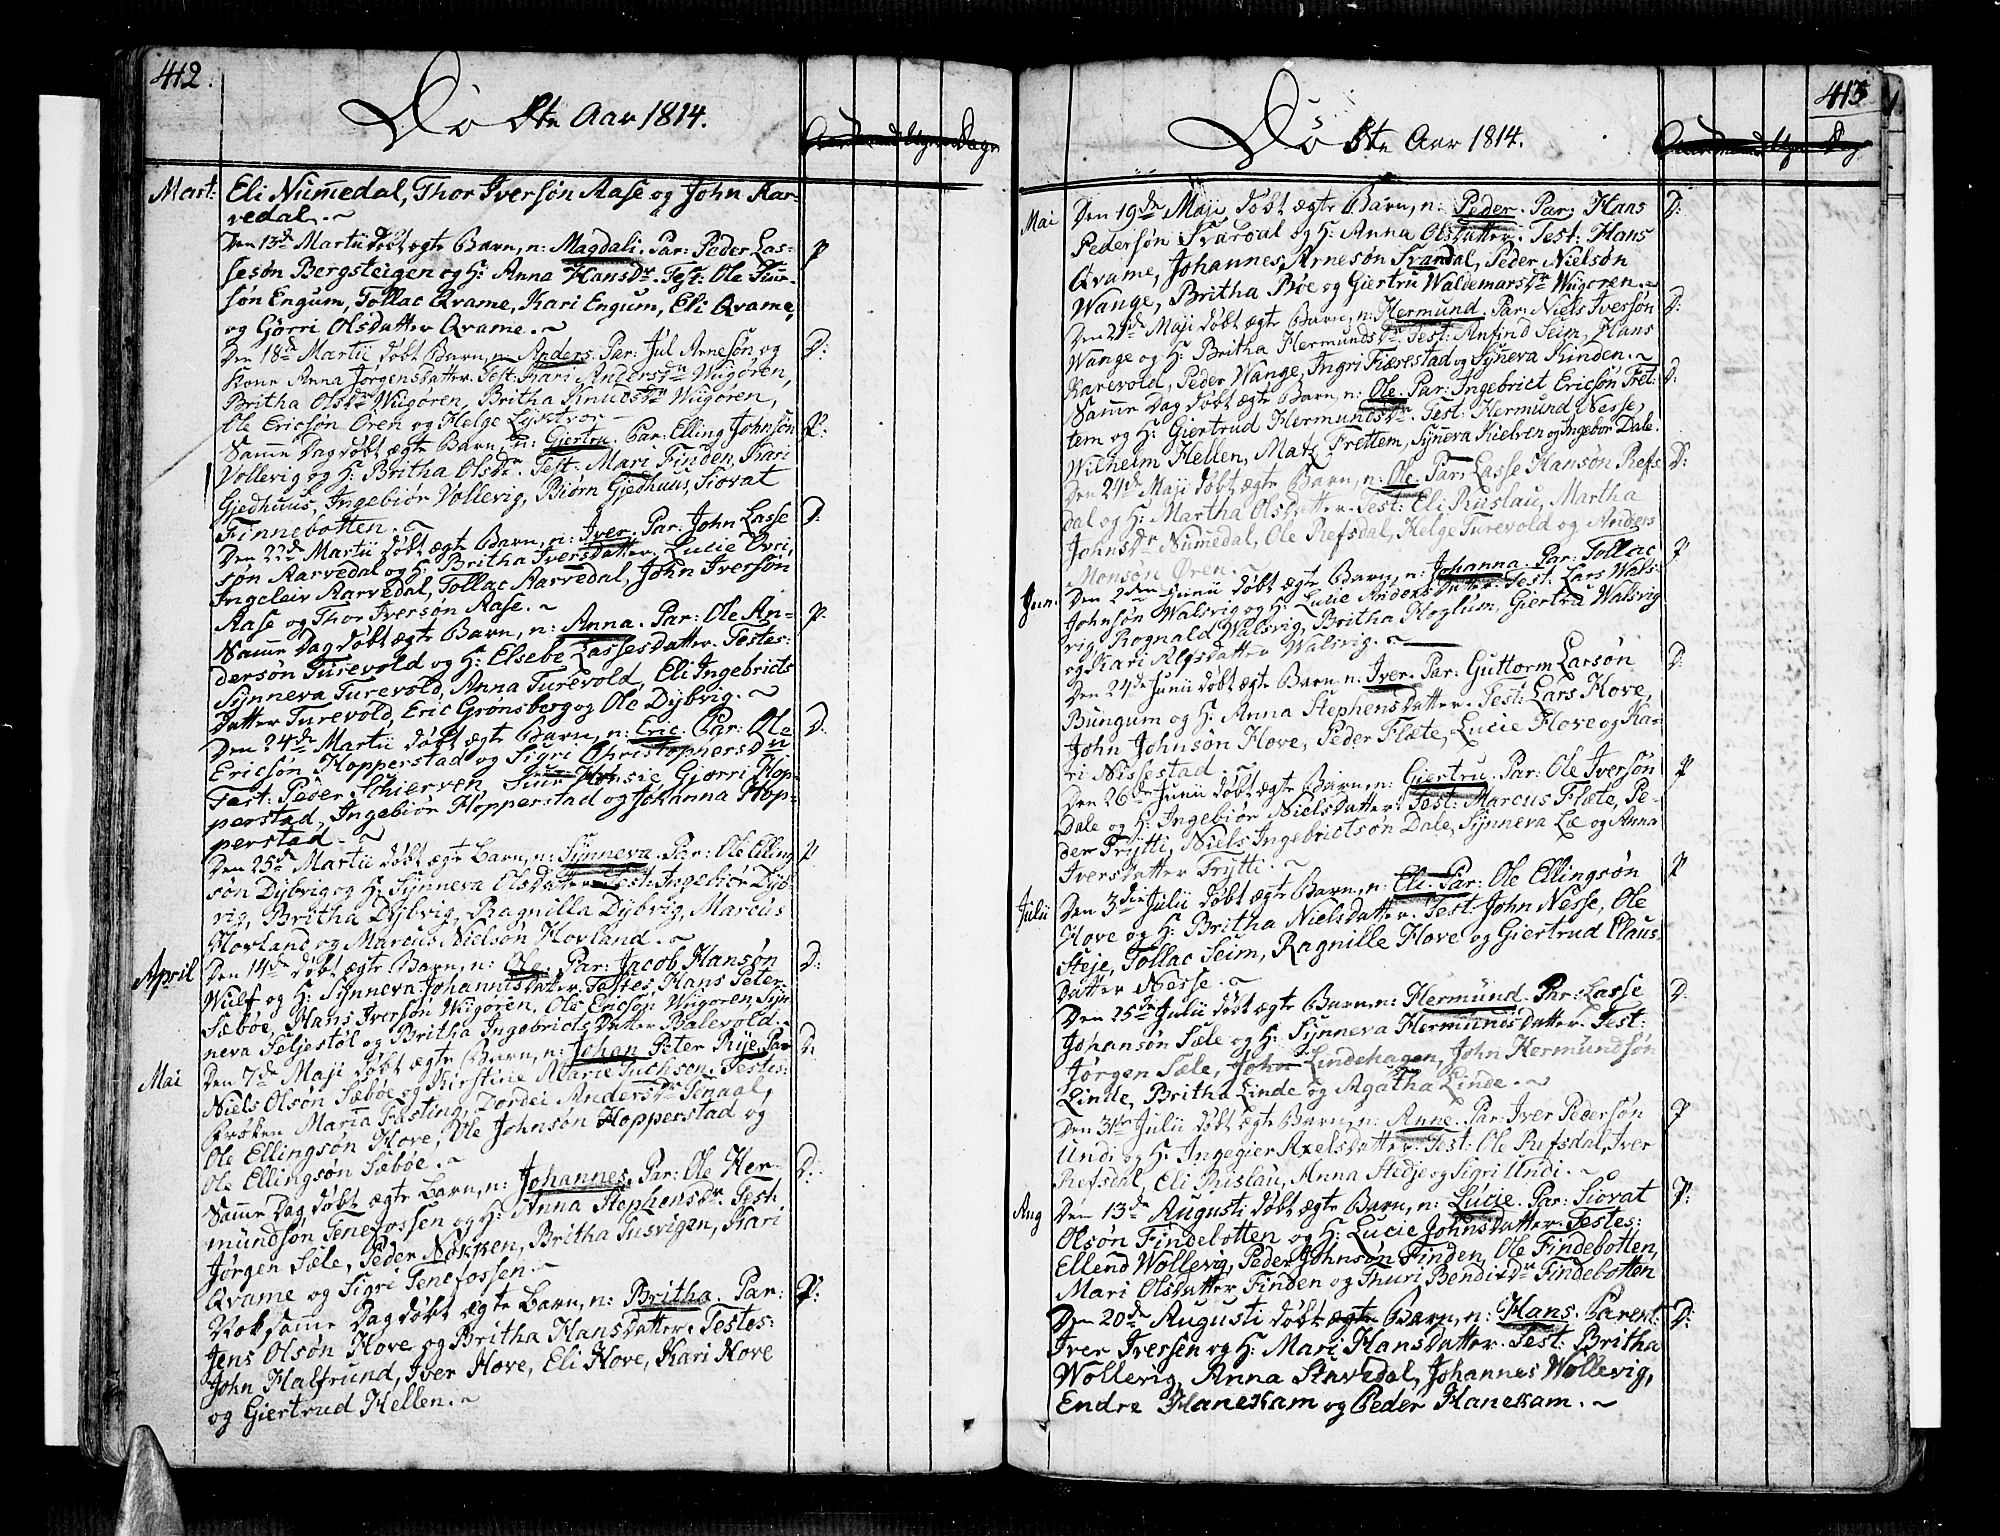 412.
Døbte Aar 1814.
Mart: Eli Numedal, Thor Iversøn Aase og John Aar-
vedal. ~
Den 13de Martii døbt ægte Barn, n: Magdali. Par: Peder Las- P
sesøn Bergsteigen og H: Anna Hansdr. Test: Ole Siur-
søn Engum, Tollac Qvame, Kari Engum, Eli Qvame,
og Gørri Olsdatter Qvame. ~
Den 18de Martii døbt Barn, n: Anders. Par: Jul Arnesøn og D:
Kone Anna Jørgensdatter. Test: Kari Andersdr Wügøren,
Britha Olsdr Wügøren, Britha Knudsdr Wügøren,
Ole Ericsøn Øren og Helge Lyktror
Samme Dag døbt ægte Barn, n: Giertru. Par: Elling Johnsøn P:
Vollevig og H: Britha Olsdr. Test: Mari Finden, Kari
Gjedhuus, Ingebiør Vollevig, Biørn Gjedhuus, Siovat
Finnebotten. ~
Den 22de Martii døbt ægte Barn, n: Iver. Par: John Lasse D:
søn Aarvedal og H: Britha Iversdatter. Lucie Øvri,
Ingeleiv Aarvedal, Tollac Aarvedal, John Iversøn
Aase og Thor Iversøn Aase. ~
Samme Dag døbt ægte Barn, n: Anna. Par: Ole An- P:
dersøn Turevold og H: Elsebe Lassesdatter. Testes:
Synneva Turevold, Anna Turevold, Eli Ingebricts
datter Turevold, Eric Grønsberg og Ole Dybvig. ~
Den 24de Martii døbt ægte Barn, n: Eric. Par: Ole D:
Ericsøn Hopperstad og Sigri Christophersdn
Test: Peder Schierven, Siur Honsie, Gjørri Hop-
perstad, Ingebiør Hopperstad og Johanna Hop-
perstad. ~
Den 25de Martii døbt ægte Barn, n: Synneva. Par: Ole Elling P
søn Dybvig og H: Synneva Olsdatter. Test: Ingebiør Dyb-
vig, Britha Dybvig, Ragnilla Dybvig, Marcus
Hovland og Marcus Nielsøn Hovland. ~
April Den 14de døbt ægte Barn, n: Ole. Par: Jacob Hansøn D:
Wulf og H: Synneva Johannisdatter. Testes, Hans Peter-
Sæbøe, Hans Iversøn Wügøren, Ole Ericsøn Wügøren, Syn
neva Seljestøl og Britha Ingebrictsdatter Balevold.
Mai Den 7de Maji døbt ægte Barn, n: Johan Peter Rije. Par D:
Niels Olsøn Sæbøe og Kirstine Marie Tuchsen. Testes:
Frøken Maria Fasting, Dordei Andersdr Tenaal,
Ole Ellingsøn Hove, Ole Johnsøn Hopperstad og
Ole Ellingsøn Sæbøe. ~
Samme Dag døbt ægte Barn, n: Johannes. Par: Ole Her- D:
mundsøn Tenefossen og H: Anna Stephensdr. Test:
Jørgen Sæle, Peder Nøkken, Britha Tusvigen, Kari
Qvame og Sigri Tenefossen. ~
Nok samme Dag døbt ægte Barn, n: Britha. Par: P:
Jens Olsøn Hove og Britha Hansdatter. Testes:
John Halfrund, Iver Hove, Eli Hove, Kari Hove
og Giertrud Hellen. ~
413
Døbte Aar 1814.
Mai Den 19de Maji døbt ægte Barn, n: Peder. Par: Hans D:
Pedersøn Svardal og H: Anna Olsdatter. Test: Hans
Qvame, Johannes Arnesøn Svardal, Peder Nielsøn
Wange, Britha Bøe og Giertru Waldemarsdr Wügøren. ~
Den 29de Maji døbt ægte Barn, n: Hermund. Par: Niels Iversøn D:
Wange og H: Britha Hermundsdr Test: Anfind Seim, Hans
Karevold, Peder Wange, Ingri Fiærestad og Synneva Kinden. ~
Samme Dag døbt ægte Barn, n: Ole. Par: Ingebrict Ericsøn Fret: D:
tem og H: Giertrud Hermundsdr. Test: Hermund Nesse,
Wilhelm Hellen, Matz Frettem, Synneva Kielven og Ingebor Dale.
Den 24de Maji døbt ægte Barn, n: Ole. Par: Lasse Hansøn Refs D:
dal og H: Martha Olsdatter. Test: Eli Ruslau, Martha
Johnsdr Numedal, Ole Refsdal, Helge Turevold og Anders
Monsøn Øren. ~
Jun. Den 2den Junii døbt ægte Barn, n: Johanna. Par: Tollac P
Johnsøn Walsvig og H: Lucie Andersdatter. Test: Lars Wals-
vig, Rognald Walsvig, Britha Hoglum, Giertru Walsvig
og Kari Alfsdatter Walsvig. ~
Den 24de Junii døbt ægte Barn, n: Iver. Par: Guttorm Larsøn D:
Bungum og H: Anna Stephensdatter. Test: Lars Hove,
John Johnsøn Hove, Peder Flæte, Lucie Hove og Ka-
ri Nissestad. ~
Den 26de Junii døbt ægte Barn, n: Giertru. Par: Ole Iversøn P
Dale og H: Ingebiør Nielsdatter. Test: Marcus Flæte, Pe-
der Frytti, Niels Ingebrictsøn Dale, Synneva Læ og Anna
Iversdatter Frytti. ~
Julii Den 3die Julii døbt ægte Barn, n: Eli. Par: Ole Ellingsøn P
Hove og H: Britha Nielsdatter. Test: John Nesse, Ole
Steje, Tollac Seim, Ragnille Hove og Giertrud Claus-
datter Nesse. ~
Den 25de Julii døbt ægte Barn, n: Hermund. Par: Lasse D:
Johansøn Sæle og H: Synneva Hermundsdatter. Test:
Jørgen Sæle, John Lindehagen, John Hermundsøn
Linde, Britha Linde og Agatha Linde. ~
Den 31te Julii døbt ægte Barn, n: Anne. Par: Iver Pedersøn P
Undi og H: Ingegier Axelsdatter. Test: Ole Refsdal, Iver
Refsdal, Eli Rislau, Anna Stedje og Sigri Undi. ~
Aug Den 13de Augusti døbt ægte Barn, n: Lucie. Par: Siovat P:
Olsøn Findebotten og H: Lucie Johnsdatter. Testes:
Ellend Wollevig, Peder Johnsøn Finden, Ole Findebotten,
Mari Olsdatter Finden og Thuri Bendixdr Findebotten
Den 20de Augusti døbt ægte Barn, n: Hans. Parent: D:
Iver Iversen og H: Mari Hansdatter. Test: Britha
Wollevig, Anna Stavedal, Johannes Wollevig,
Endre Hanekam og Peder Hanekam. ~